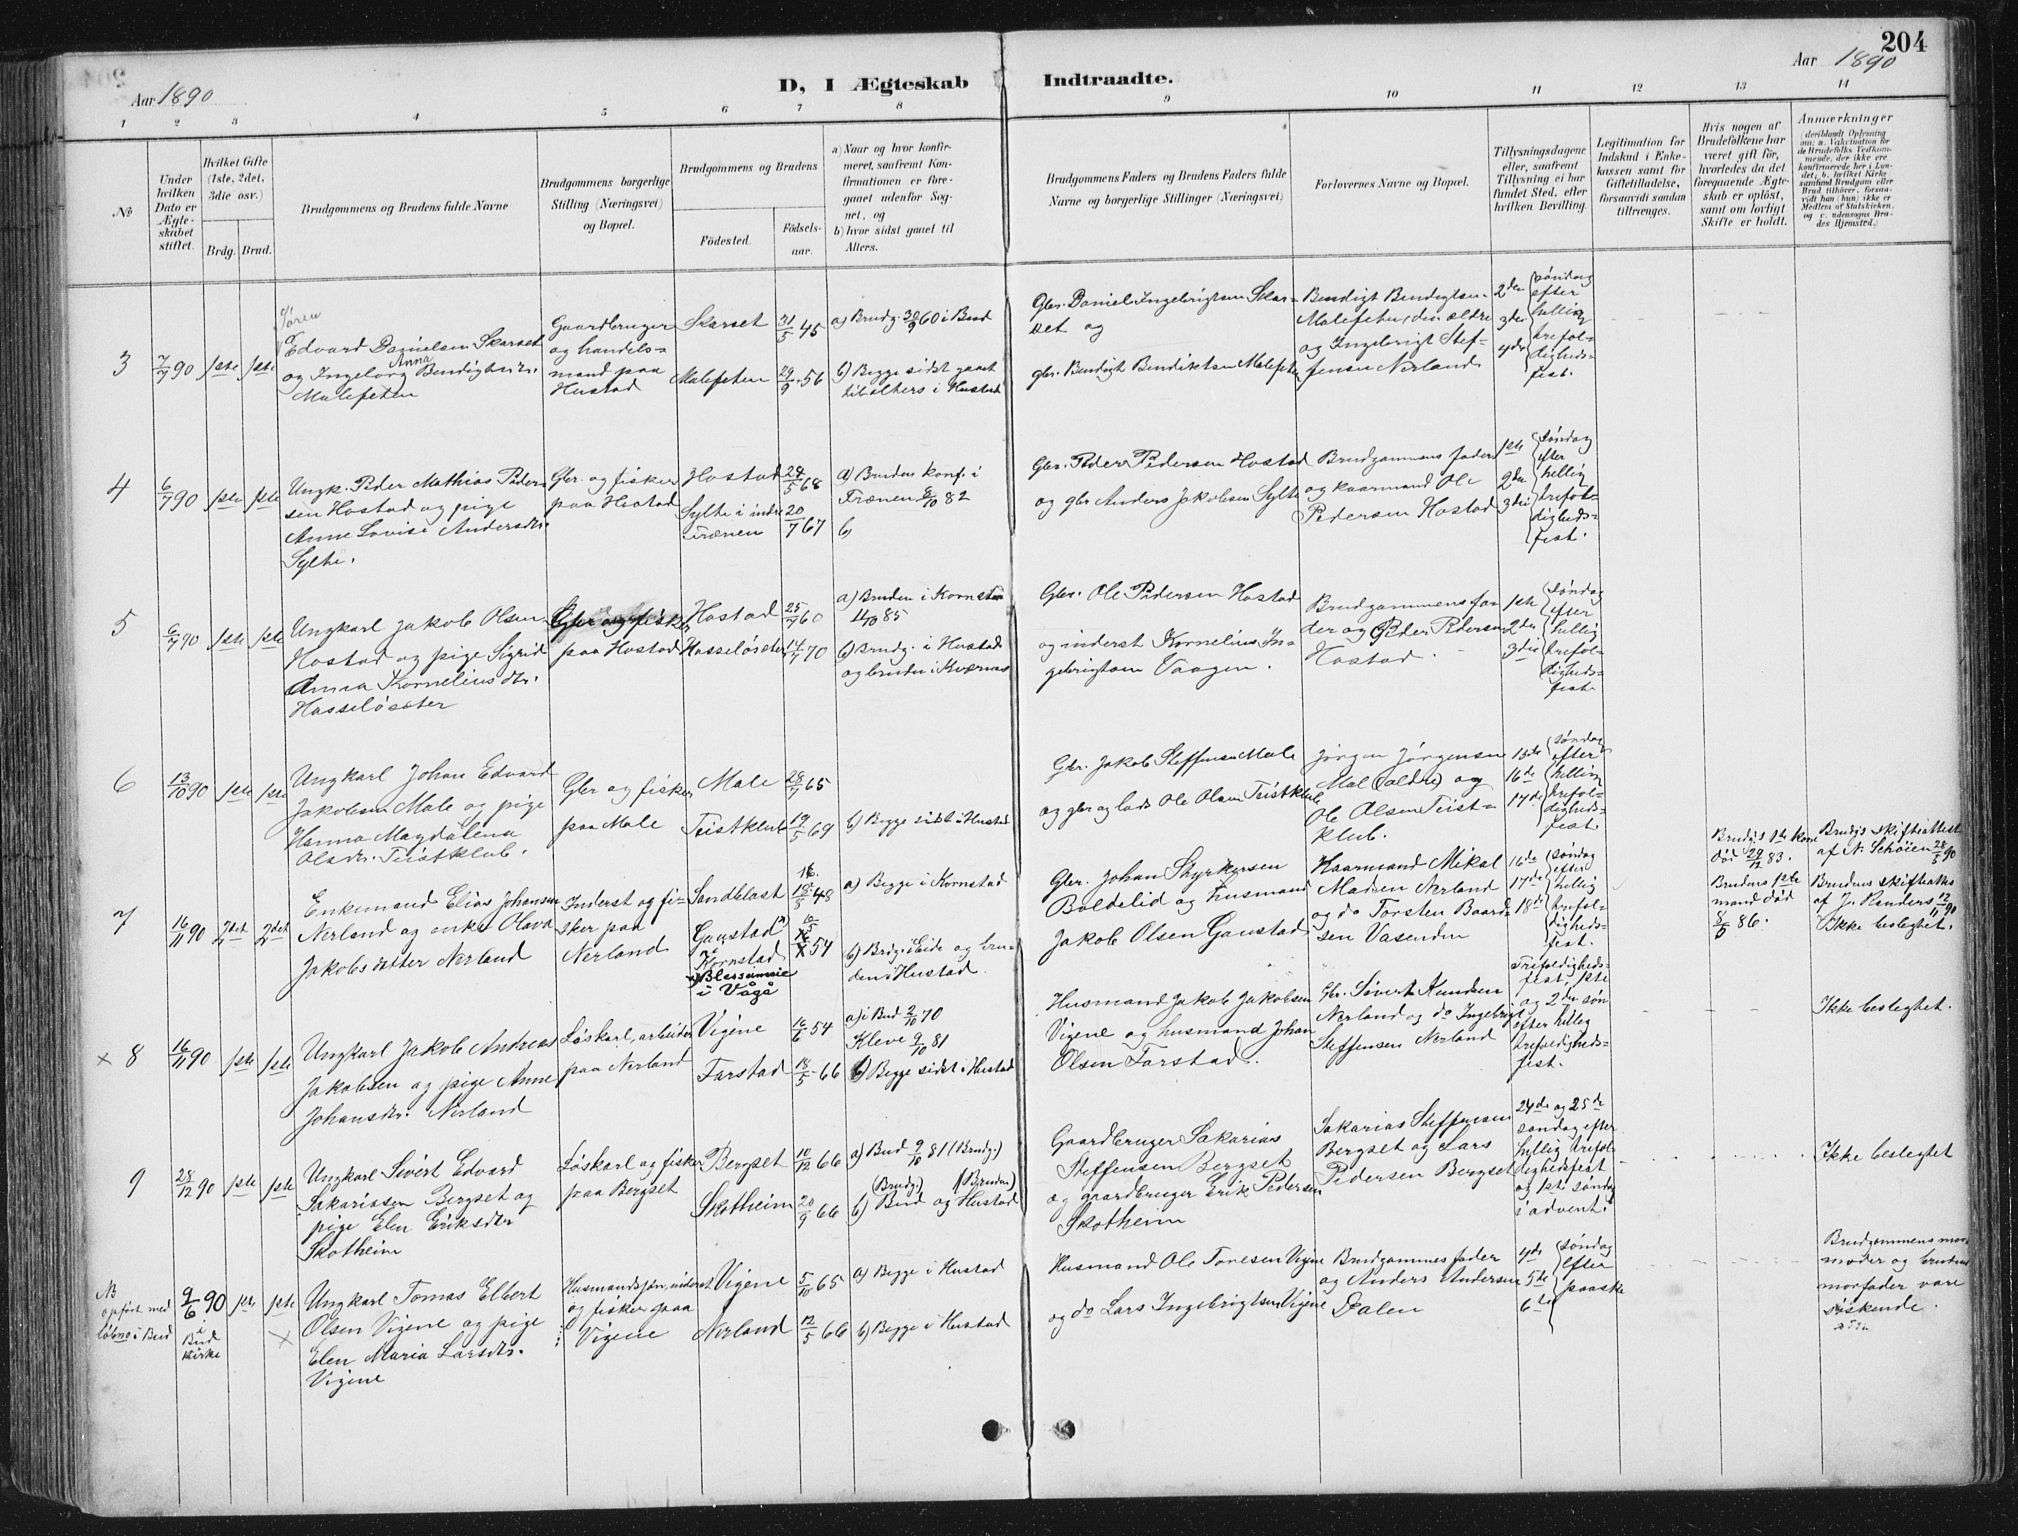 204
Aar 1890
D, I Ægteskab Indtraadte.
Aar 1890
1 2 3 4 5 6 7 8 9 10 11 12 13 14
No
Under hvilken Dato er Ægteskabet stiftet.
Hvilket Gifte (1ste, 2det, 3die osv.)
Brdg. Brud.
Brudgommens og Brudens fulde Navne
Brudgommens borgerlige Stilling (Næringsvei) og Bopæl.
Brudgommens og Brudens
Födested.
Födsels-aar.
a) Naar og hvor konfir-
meret, saafremt Kon-
firmationen er fore-
gaaet udenfor Sog-
net, og
b) hvor sidst gaaet til
Alters.
Brudgommens Faders og Brudens Faders fulde
Navne og borgerlige Stillinger (Næringsvei)
Forlovernes Navne og Bopæl.
Tillysningsdagene
eller, saafremt
Tillysning ei har
fundet Sted, efter
hvilken Bevilling
Legitimation for
Indskud i Enke-
kassen samt for
Giftetilladelse,
forsaavidt saadan
tiltrænges.
Hvis nogen af
Brudefolkene har
været gift før,
hvorledes da det
foregaaende Ægte-
skab er opløst,
samt om lovligt
Skifte er holdt.
Anmærkninger
3 7/7 90 1ste 1ste
Søren
Edvard Danielsen Skarset
Anna
og Ingeborg Bendigtsdtr.
Malefeten
Gaardbruger
og handels-
mand paa
Hustad
Skarset 31/5 45
Malefeten 29/9 56
a) Brudg. 30/9 60 i Bud
b) Begge sidst gaaet
til alters i Hustad
Gbr. Daniel Ingebrigtsen Skar-
set og
gbr. Bendigt Bendiktsen Malefeten
Bendigt Bendigtsen
Malefeten, den ældre
og Ingebrigt Stef-
fensen Nerland
2den 3die 4de
søndag
efter
hellig
trefol-
digheds-
fest.
4 6/7 90 1ste 1ste
Ungk. Peder Mathias Peder-
sen Hostad og pige
Anne Lovise Andersdtr.
Sylte.
Gbr. og fisker
paa Hostad
Hostad 24/5 68
Sylte i indre
Frænen 20/7 67
a) Bruden konf. i
Frænen 8/10 82
b)
Gbr. Peder Pedersen Hostad
og gbr Anders Jakobsen Sylte
Brudgommens fader
og kaarmand Ole
Pedersen Hostad
1ste 2den 3die
søndag
efter
hellig
trefol-
digheds-
fest.
5 6/7 90 1ste 1ste
Ungkarl Jakob Olsen
Hostad og pige Sigrid
Anna Kornelius dtr.
Hasseløseter
Gbr og fisker
paa Hostad
Hostad 25/7 60
Hasseløseter 14/7 70
a) Bruden i Kornstad
4/10 85
b) Brudg. i Hustad
og bruden i Kvernes
Gbr. Ole Pedersen Hostad
og inderst Kornelius In-
gebrigtsen Vaagen.
Brudgommens fa-
der og Peder Pedersen
Hostad.
1ste 2den 3die
søndag
efter
hellig
trefol-
digheds-
fest
6 13/10 90 1ste 1ste
Ungkarl Johan Edvard
Jakobsen Male og pige
Hanna Magdalena
Olsdtr. Teistklub.
Gbr og fisker
paa Male
Male 28/7 65
Teistklub 19/5 69
b) Begge sidst i Hustad
Gbr. Jakob Steffensen Male
og gbr og lods Ole Olsen Teistklub
Jørgen Jørgensen
Mal (ældre) og
Ole Olsen Teist-
klub.
15de 16de 17de
søndag
efter
hellig
trefol-
digheds-
fest.
7 16/11 90 2det 2det
Enkemand Elias Johansen
Nerland og enke Olava
Jakobsdatter Nerland
Inderst og fi-
sker paa
Nerland
Sandblast 48
Gaustad 54
i
Kornstad
Blessumeie
i Vågå
a) Begge i Kornstad
b) Brdg. i Eide og bru-
den i Hustad.
Gbr. Johan Styrkersen
Boldelid og husmand
Jakob Olsen Gaustad
Kaarmand Mikal
Madsen Nerland
og do Torsten Baard-
sen Vasenden
16de 17de 18de
søndag
efter
hellig
trefol-
digheds-
fest.
Brudgs 1ste kone
død 29/12 83.
Brudens 1ste
mand død
8/5 86.
Brudgs skifteattest
af N. Schøien 28/5 90
Brudens skifteatts
af J. Randers 12/11 90
Ikke beslegtet.
x 8 16/11 90 1ste 1ste
Ungkarl Jakob Andreas
Jakobsen og pige Anne
Johansdtr. Nerland
Løskarl, arbeider
paa Nerland
Vigene 16/6 54
Farstad 18/5 66
a) i Bud 2/10 70
Kleve 9/10 81
b) Begge sidst i Hustad
Husmand Jakob Jakobsen
Vigene og husmand Johan
Olsen Farstad.
Gbr. Sivert Knudsen
Nerland og do Ingebrigt
Steffensen Nerland
Trefoldigheds-
fest, 1ste
og 2den søn
efter hellig
trefoldigheds-
fest.
Ikke beslegtet.
9 28/12 90 1ste 1ste
Ungkarl Sivert Edvard
Sakariasen Bergset og
pige Elen Eriksdtr
Skotheim
Løskarl og fisker
paa Bergset
Bergset 10/12 66
Skotheim 20/9 66
a) Bud 9/10 81 (Brudg.)
(Brudg.) (Bruden)
b) Bud og Hustad
Gaardbruger Sakarias
Steffensen Bergset
og gaardbruger Erik Pedersen
Skotheim
Sakarias Steffensen
Bergset og Lars
Pedersen Bergset
24de og 25de
søndag efter
hellig trefol-
dighedsfest
og 1ste søndag
i advent.
Ikke beslegtet
NB
opført med
løbno i Bud
9/6 90
i
Bud
kirke
1ste 1ste
Ungkarl Tomas Elbert
Olsen Vigene og pige
Elen Maria Larsdtr.
Vigene
Husmandssøn, inderst
og fisker paa
Vigene
Vigene 5/10 65
Nerland 12/5 66
a) Begge i Hustad
b) Begge i Hustad
Husmand Ole Tonesen Vigene
og do Lars Ingebrigtsen Vigene
Brudgommes fader
og Anders Andersen
Dalen
4de 5te 6te
søndag
efter
paaske
Brudgommens mor-
moder og brudens
morfader vare
søskende.